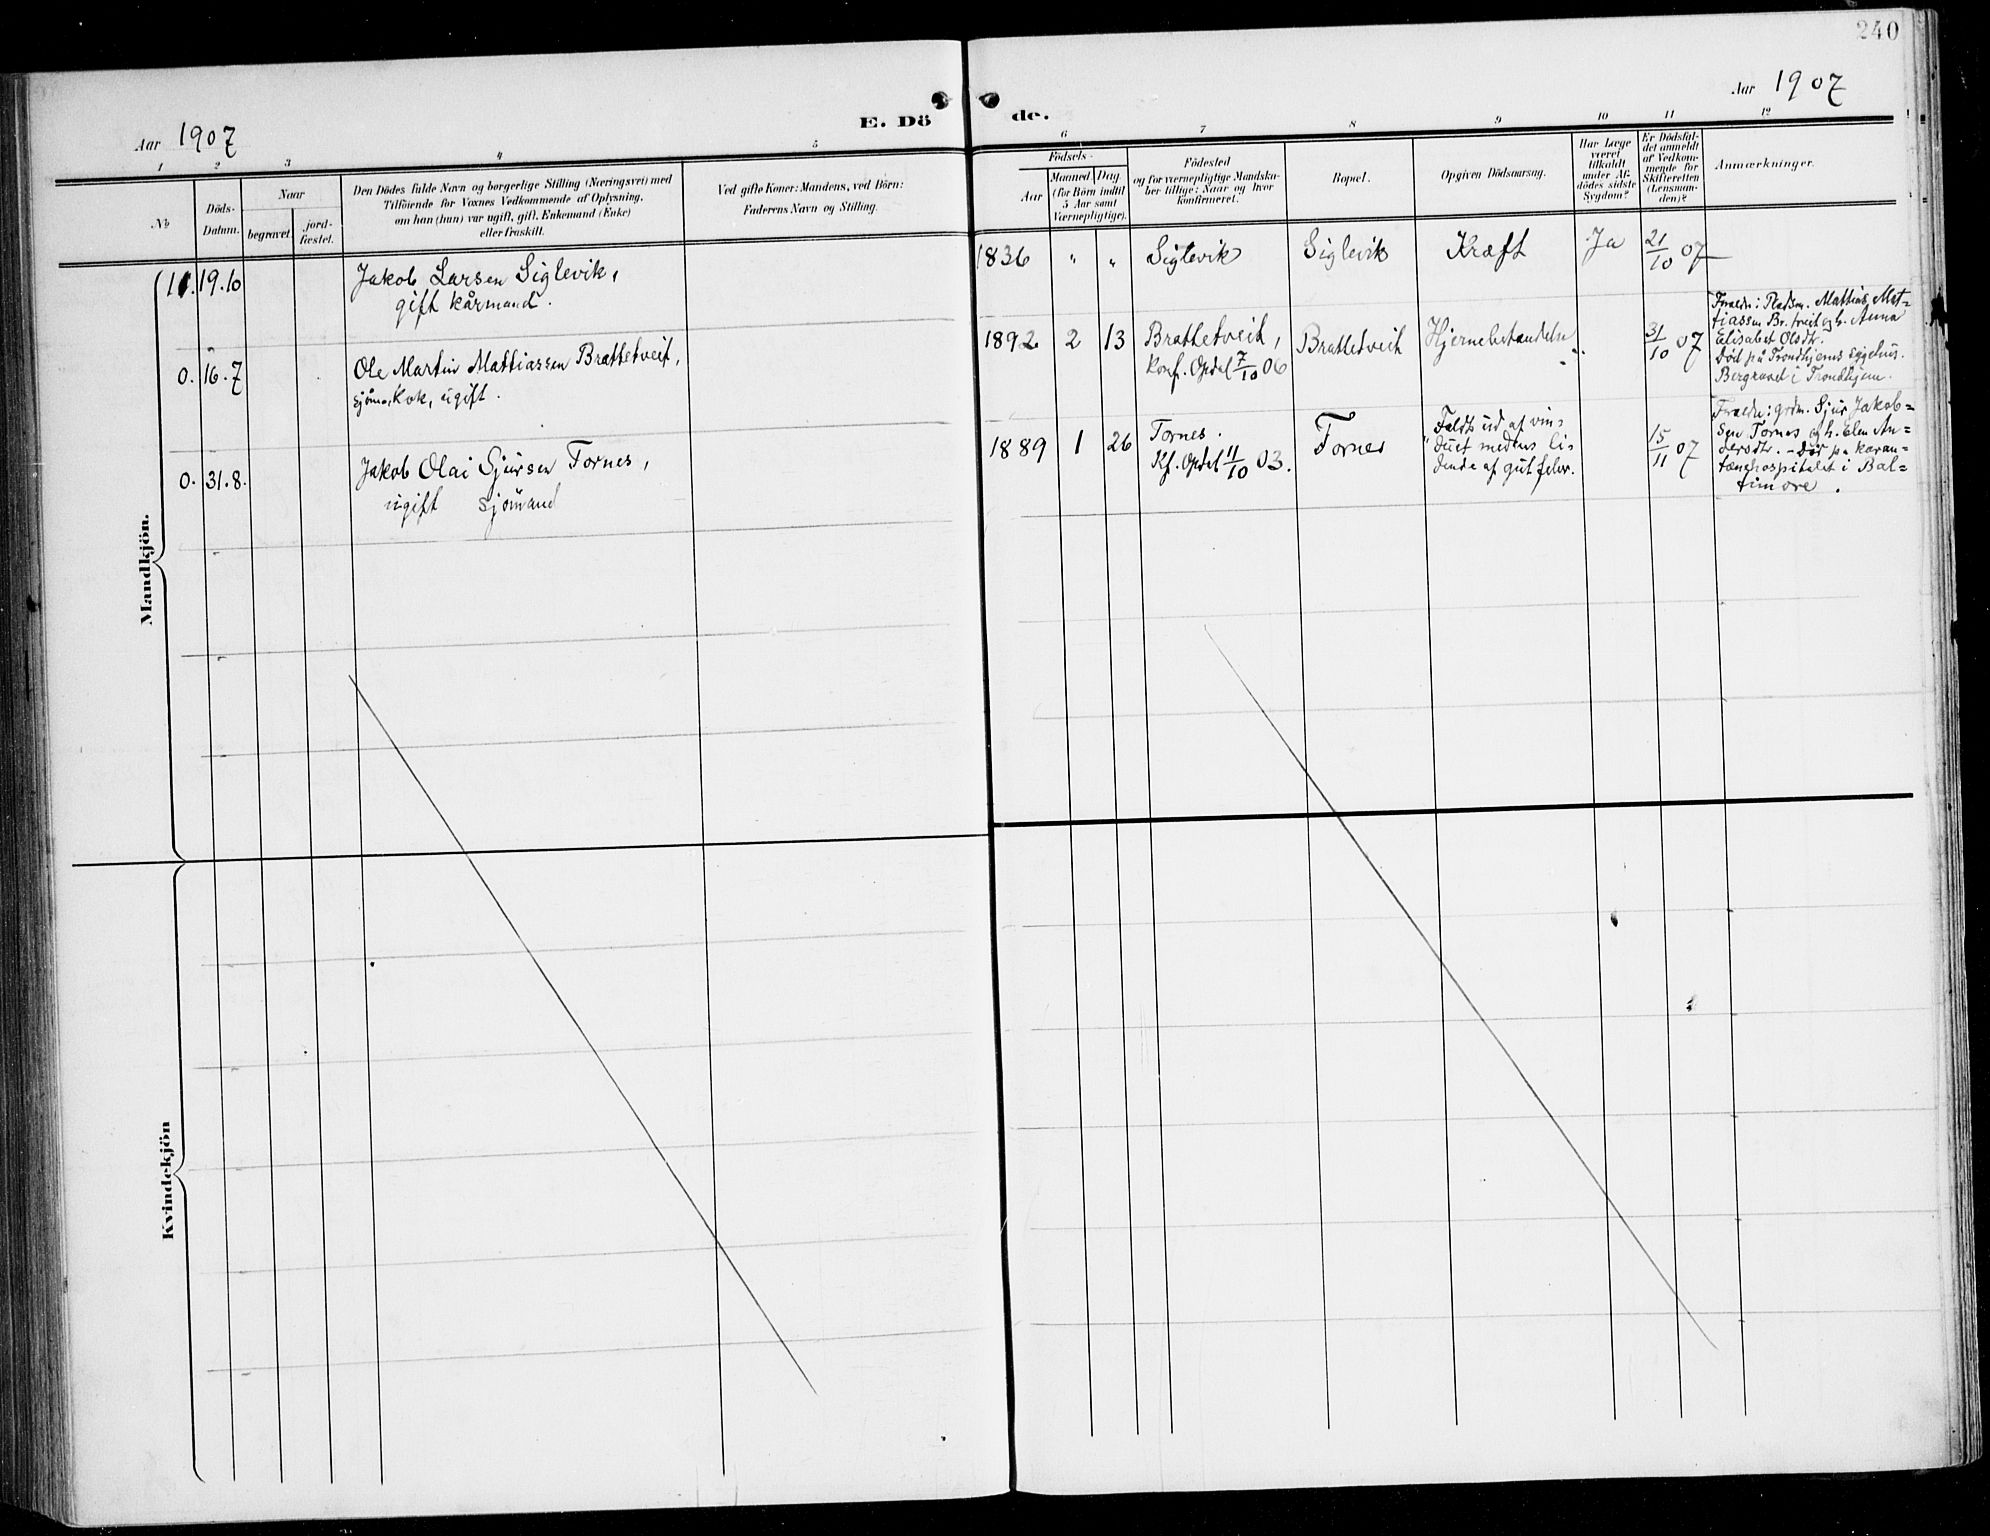 240
Aar 1907
E. Dö
de.
Aar 1907
1
2
3
4
5
6
7
8
9
10
11
12
No
Döds-
Datum.
Naar
begravet.
jord-
fæstet.
Den Dödes fulde Navn og borgerlige Stilling (Næringsvei) med
Tilföiende for Voxnes Vedkommende af Oplysning,
om han (hun) var ugift, gift, Enkemand (Enke)
eller fraskilt.
Ved gifte Koner: Mandens, ved Börn:
Faderens Navn og Stilling.
Födsels-
Aar
Maaned
Dag.
(for Börn indtil
5 Aar samt
Værnepligtige).
Födested
og for værnepligtige Mandska-
ber tillige: Naar og hvor
konfirmeret.
Bopæl.
Opgiven Dödsaarsag.
Har Læge
været
tilkaldt
under Af-
dödes sidste
Sygdom?
Er Dödsfal-
det anmeldt
af Vedkom-
mende for
Skifteretten
(Lensman-
den)?
Anmærkninger.
Mandkjön.
11. 19.10
Jakob Larsen Siglevik,
gift kårmand.
1836 " "
Siglevik
Siglevik
Kræft
Ja
21/10 07
0. 16.7
Ole Martin Mattiassen Brattetveit,
sjöm., Kok, ugift.
1892 2 13
Brattetveit,
Konf. Opdal 7/10 06
Brattetveit
Hjernebetændelse
31/10 07
Foraldr: Pladsm. Mattias Mat-
tiassen Br.tveit og h. Anna
Elisabet Olsdtr.
Död på Trondhjems sygehus.
Begravet i Trondhjem.
0. 31.8.
Jakob Olai Sjursen Tornes,
ugift sjömand
1889 1 26
Tornes.
Kf. Opdal 11/10 03.
Tornes
Faldt ud af vin-
duet medens li-
dende af gul feber.
15/11 07
Foraldr: grdm. Sjur Jakob-
sen Tornes og h. Elen An-
dersdtr. - Död på karan-
tænehospitalet i Bal-
timore.
Kvindekjön